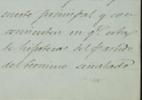 mente principal y con
en q.e esta
la hipoteca del Partido
del termino señalado